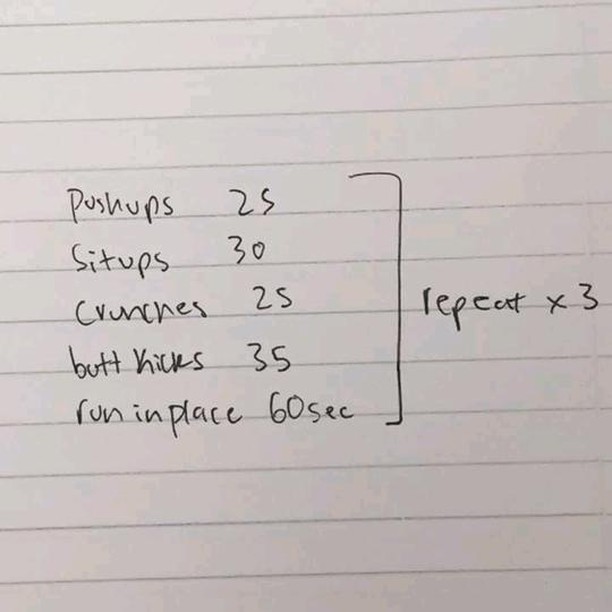 Pushups 25
Situps 30
Crunches 25
butt kicks 35
run in place 60sec
repeat x 3